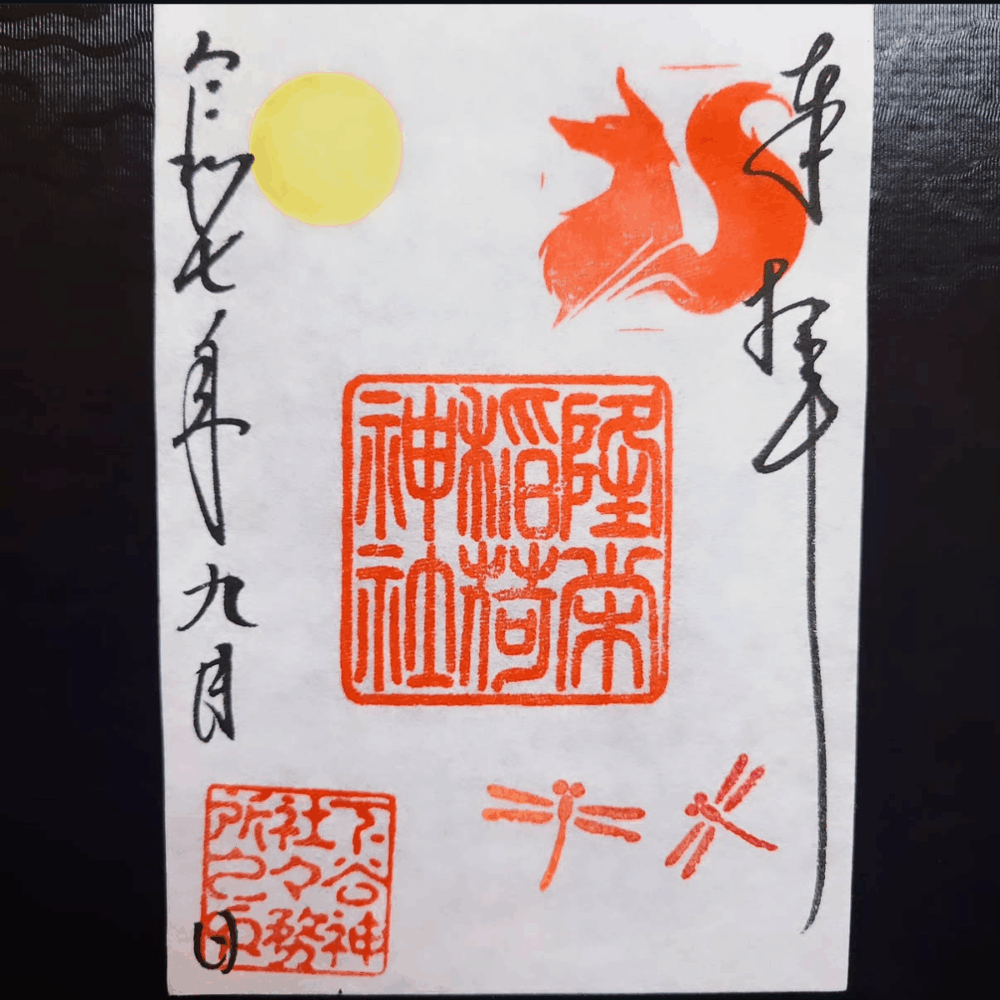 奉拝
隆栄
稲荷
神社
令和七年九月 日
下谷神
社々務
所之印